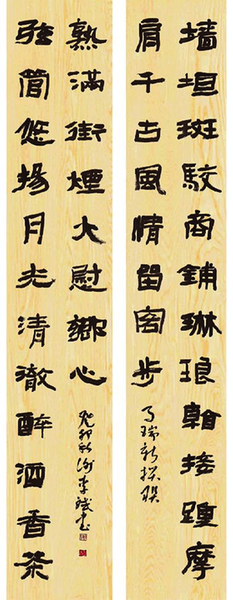 墙垣斑駮商鋪琳琅接踵摩
肩千古風情留客步
马瑞新撰联
弦管悠揚月光清澈醉酒香茶
熟滿街煙火慰鄉心
癸卯秋书